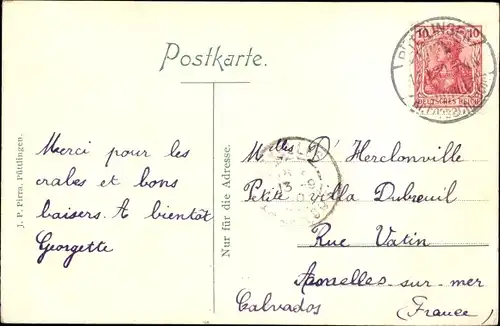 Postkarte.
10 10
PÜTTLINGEN
DEUTSCHES REICH
J. P. Pirra, Püttlingen.
Nur für die Adresse.
Merci pour les
crabes et bons
baisers. A bientôt
Georgette
Mlles D' Herclonville
Petite villa Dubreuil
Rue Vatin
sur-mer
Calvados (France)